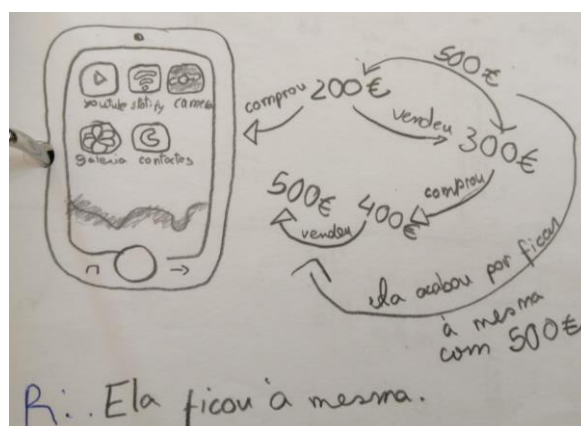 youtube spotify camera
galeria contactos
comprou 200€
500€
vendeu 300€
comprou
500€ vendeu 400€
ela acabou por ficar
à mesma
com 500€
R: . Ela ficou à mesma.